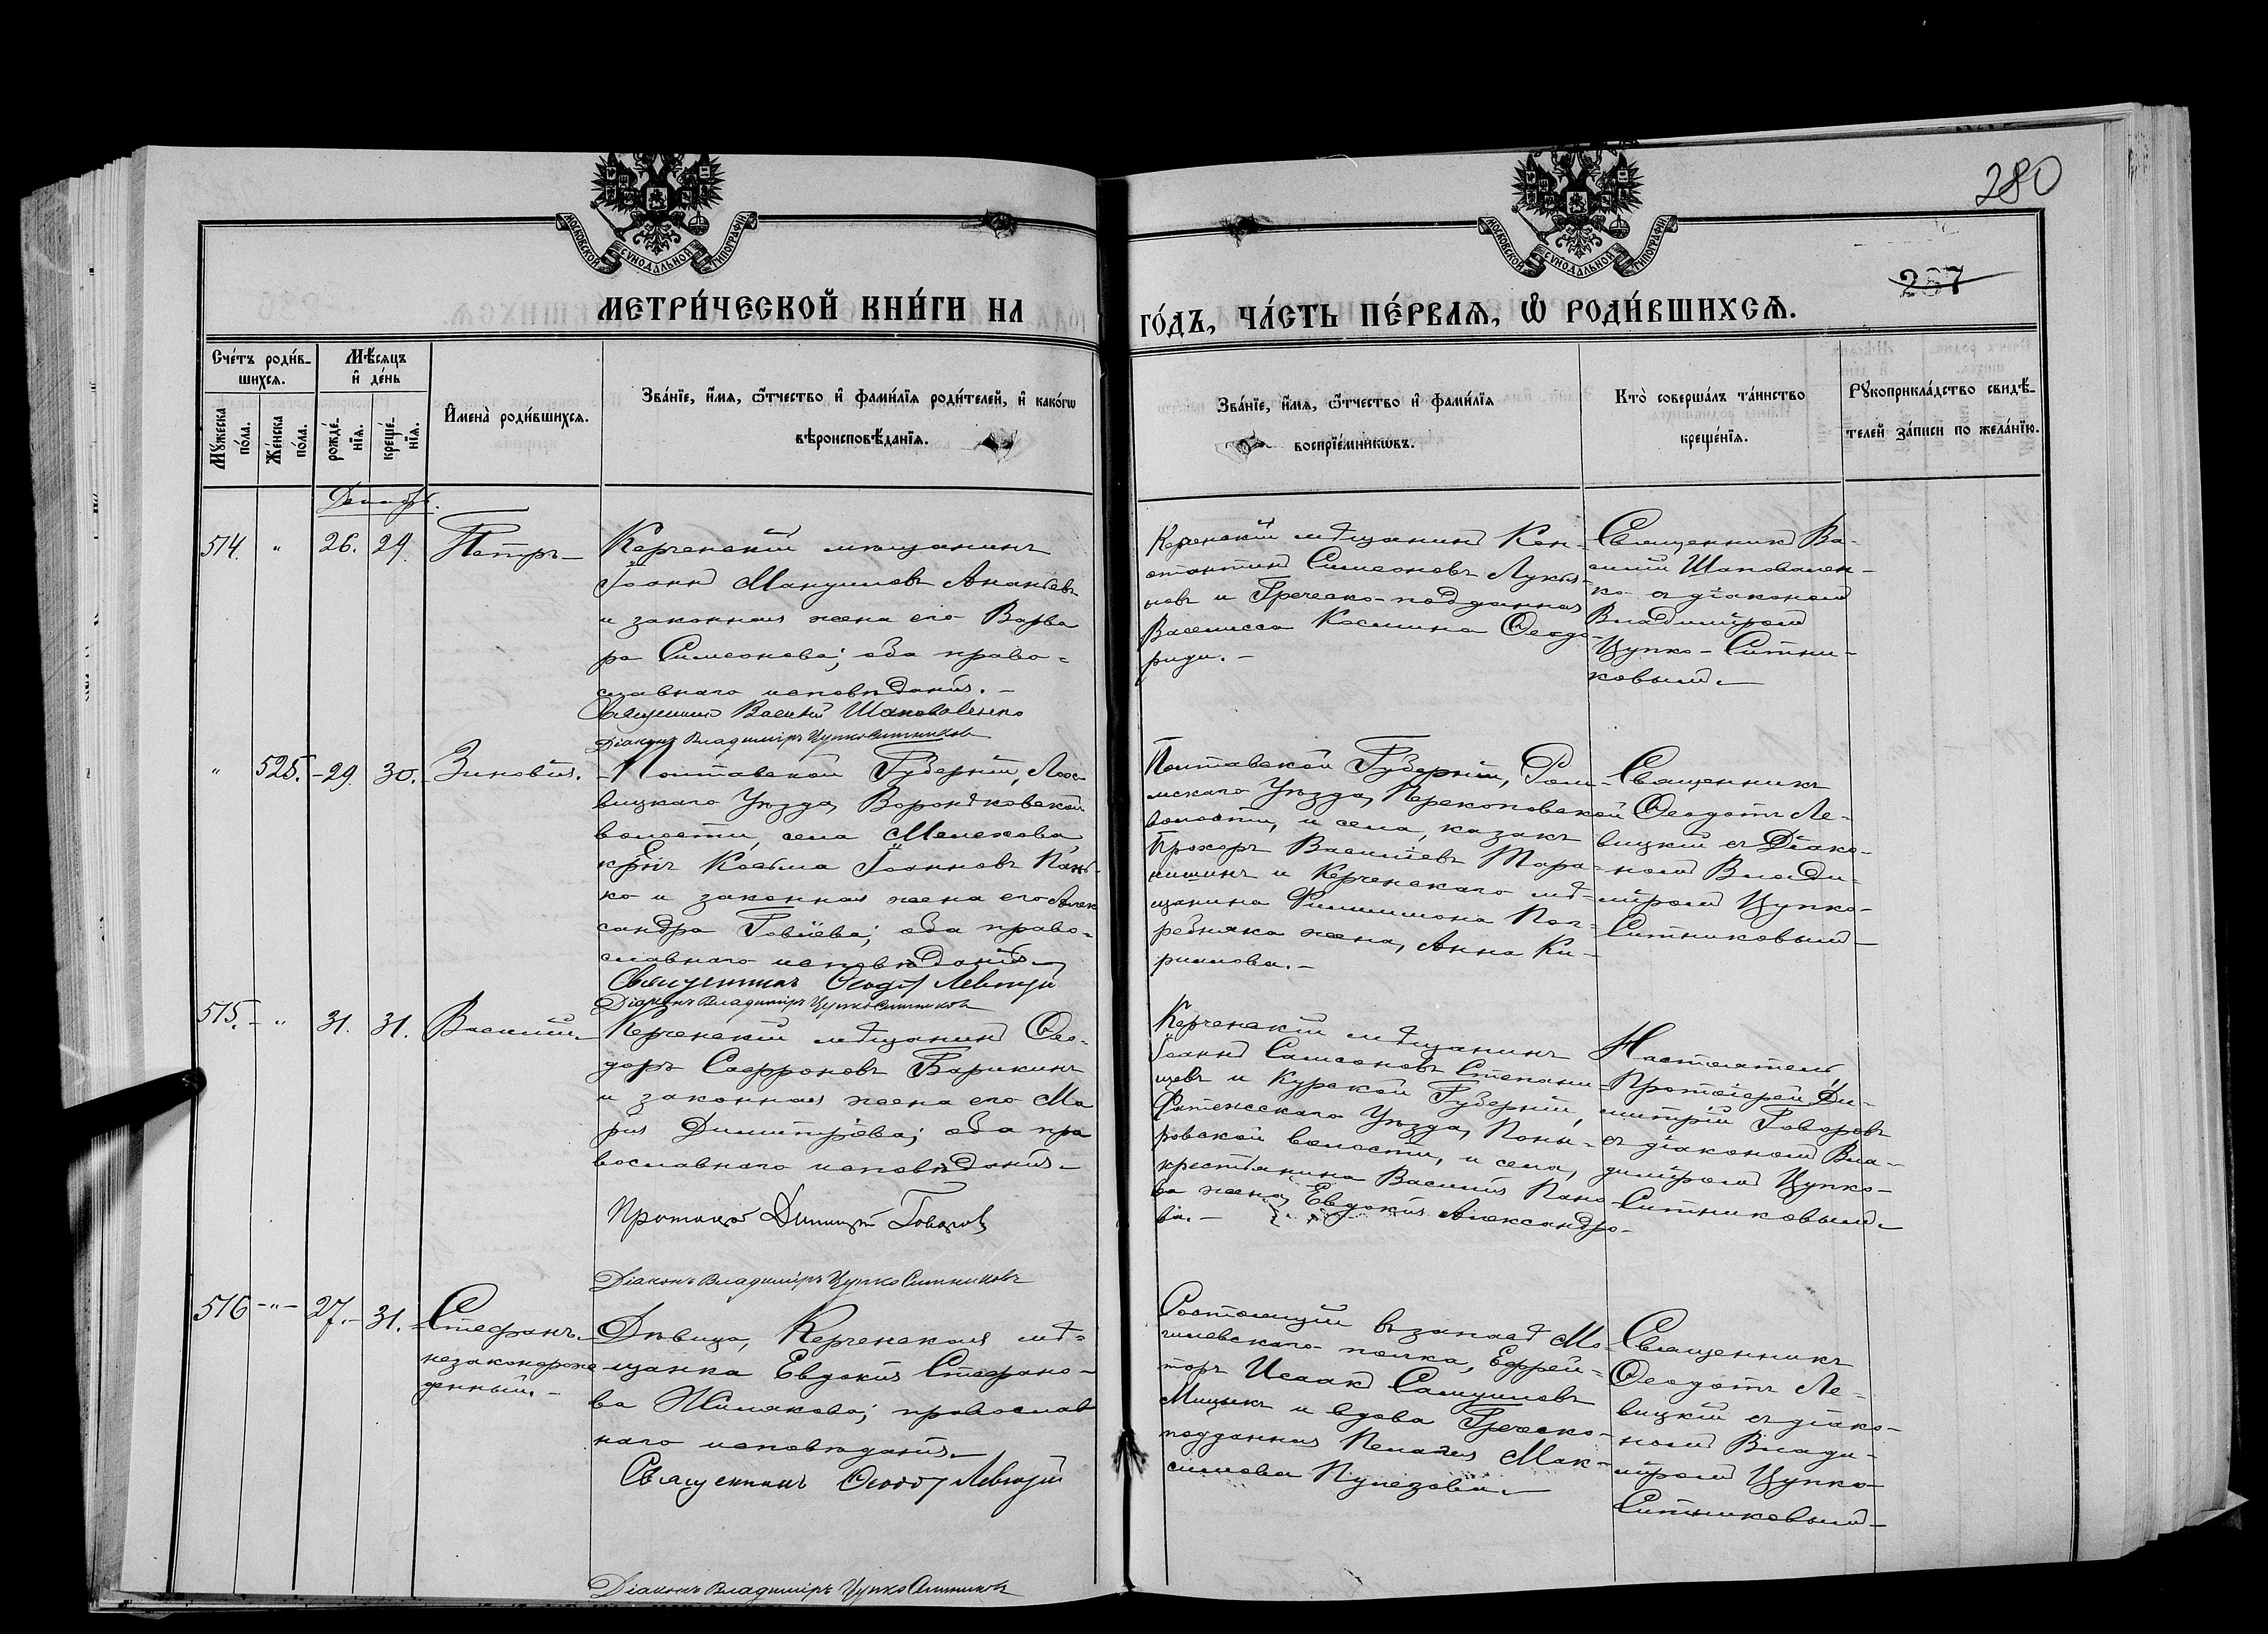 280
267
МОСКОВСКОЙ СѴНОДАЛЬНОЙ ТИПОГРАФІИ
МОСКОВСКОЙ СѴНОДАЛЬНОЙ ТИПОГРАФІИ
МЕТРИ́ЧЕСКОЙ КНИ́ГИ НА
ГО́ДЪ, ЧА́СТЬ ПЕ́РВАѦ, Ѡ РОДИ́ВШИХСѦ.
Сче́тъ роди́в-
шихсѧ.
Мꙋжеска по́ла.
Же́нска по́ла.
Мѣ́сяцъ
и҆ де́нь
рожде́-
нїѧ.
креще́-
нїѧ.
И҆мена̀ роди́вшихсѧ.
Зва́нїе, и҆́мѧ, ѻ҆́тчество и҆ фами́лїѧ роди́телей, и҆ како́гѡ
вѣроисповѣ́данїѧ.
Зва́нїе, и҆́мѧ, ѻ҆́тчество и҆ фами́лїѧ
воспрїе́мникѡвъ.
Кто̀ соверша́лъ та́инство
креще́нїѧ.
Рꙋкоприкла́дство свидѣ́-
телей за́писи по жела́нїю.
Декабрь.
514. " 26. 29. Петръ
Керченскій мѣщанинъ
Іоаннъ Мануиловъ Ананьевъ
и законная жена его Варва
ра Симеонова; оба право-
славнаго исповѣданія.
Священникъ Василій Шаповаленко
Діаконъ Владиміръ Цупко Ситниковъ
Керченскій мѣщанинъ Кон-
стантинъ Симеоновъ Лукья-
новъ и Греческо-подданная
Василисса Космина Ѳеодо-
риди.
Священникъ Ва-
силій Шаповален-
ко съ діакономъ
Владиміромъ
Цупко-Ситни-
ковымъ
" 525. 29. 30. Зиновія.
Полтавской Губерніи, Лох-
вицкаго Уѣзда, Воронковской
волости, села Мелехова
кр-нъ Косьма Іоанновъ Пань-
ко и законная жена его Алек
сандра Іовіева; оба право-
славнаго исповѣданія
Священникъ Ѳеодотъ Левицкій
Діаконъ Владиміръ Цупко Ситниковъ
Полтавской Губерніи, Ром-
мскаго Уѣзда, Перекоповской
волости, и села, казакъ
Прохоръ Василіевъ Тара-
нишинъ и Керченскаго мѣ-
щанина Филимона Пог-
ребняка жена, Анна Ки-
риллова.
Священникъ
Ѳеодотъ Ле-
вицкій съ Діако-
номъ Влади-
міромъ Цупко-
Ситниковымъ
515. " 31. 31. Василій
Керченскій мѣщанинъ Ѳео-
доръ Сафроновъ Барикинъ
и законная жена его Ма
рія Димитріева; оба пра
вославнаго исповѣданія
Протоіерей Димитрій Говоровъ
Діаконъ Владиміръ Цупко Ситниковъ
Керченскій мѣщанинъ
Іоаннъ Самсоновъ Степани-
щевъ и Курской Губерніи,
Фатежскаго Уѣзда, Поны-
ровской волости, и села,
крестьянина Василія Пано
ва жена, Евдокія Александро-
ва.
Настоятель
Протоіерей Ди-
митрій Говоровъ
съ діакономъ Вла-
диміромъ Цупко-
Ситниковымъ
516 " 27. 31. Стефанъ
незаконорож
денный.
Дѣвица, Керченская мѣ-
щанка Евдокія Стефано-
ва Жилякова; православ
наго исповѣданія
Священникъ Ѳеодотъ Левицкій
Діаконъ Владиміръ Цупко Ситниковъ
Состоящій въ запасѣ Мо-
гилевскаго полка, Ефрей-
торъ Исаакъ Самуиловъ
Мицыкъ и вдова Греческо-
подданная Пелагія Мак-
симова Пулезова
Священникъ
Ѳеодотъ Ле-
вицкій съ діако-
номъ Влади-
міромъ Цупко
Ситниковымъ